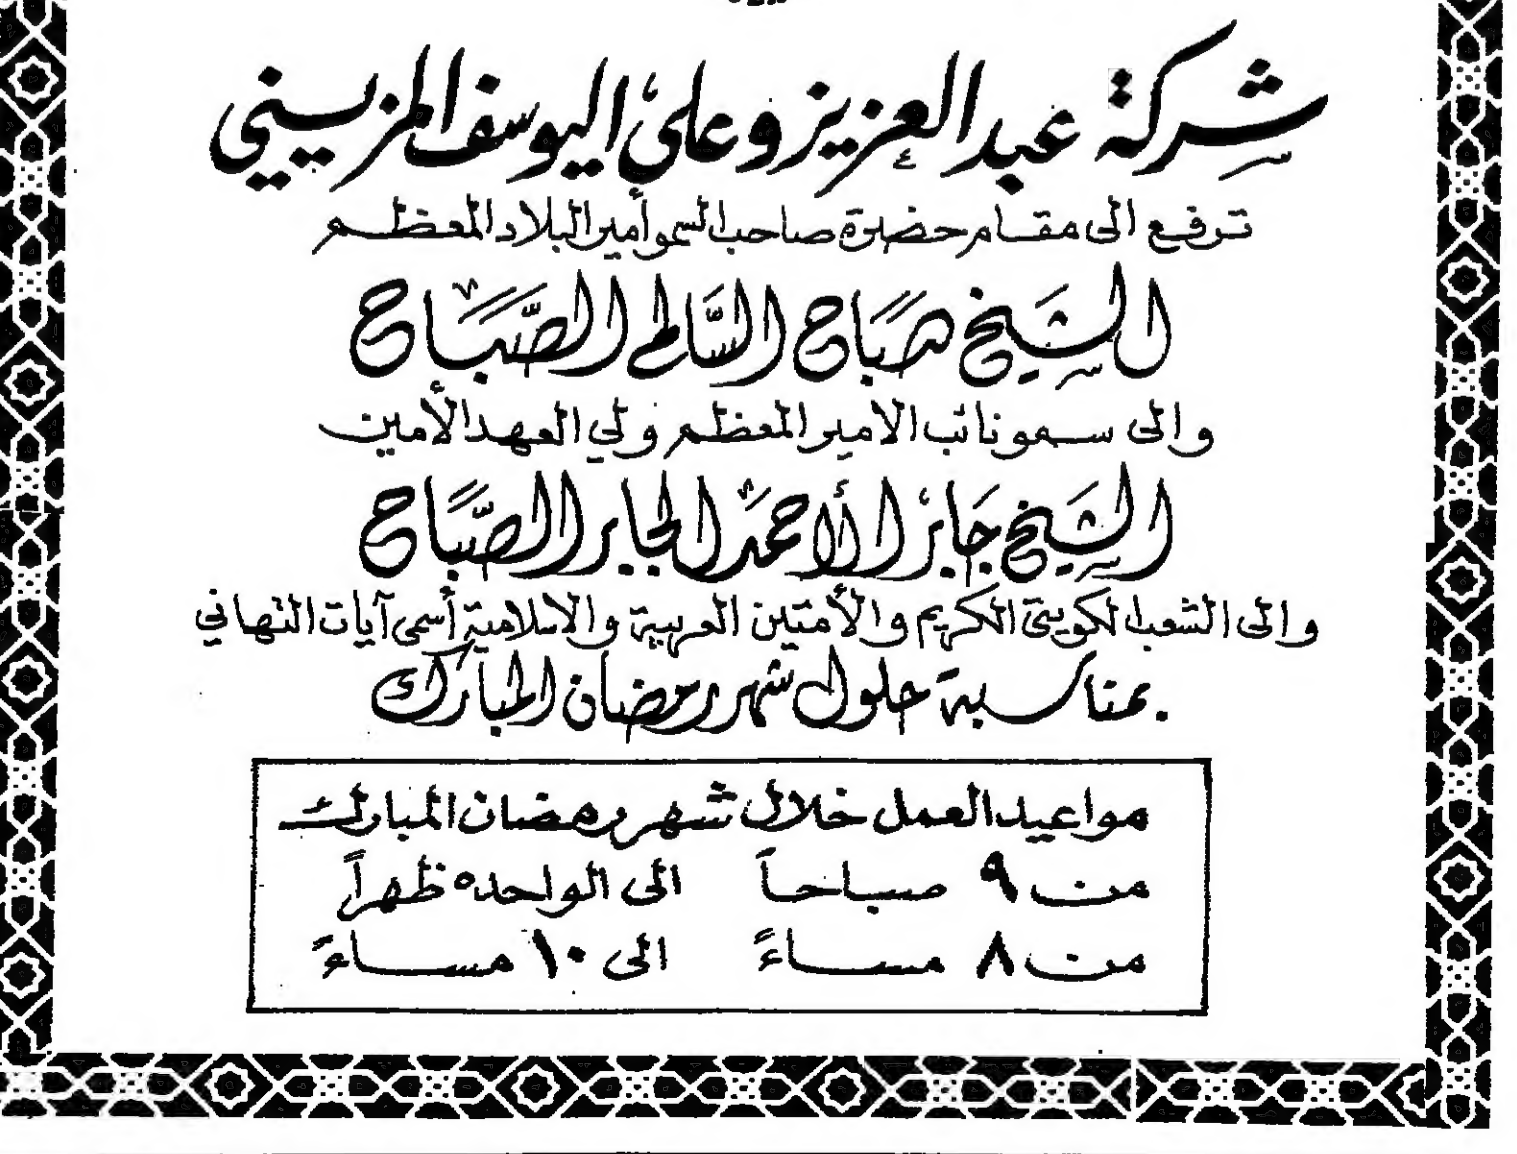 شركة عبد العزيز وعلي اليوسف المزيني
ترفع الى مقام حضرة صاحب السمو أمير البلاد المعظم
الشيخ صباح السالم الصباح
والى سمو نائب الامير المعظم ولي العهد الأمين
الشيخ جابر الأحمد الجابر الصباح
والى الشعب الكويتي الكريم والأمتين العربية والاسلامية أسمى آيات التهاني
بمناسبة حلول شهر رمضان المبارك
مواعيد العمل خلال شهر رمضان المبارك
من ٩ صباحاً الى الواحده ظهراً
من ٨ مساءً الى ١٠ مساءً